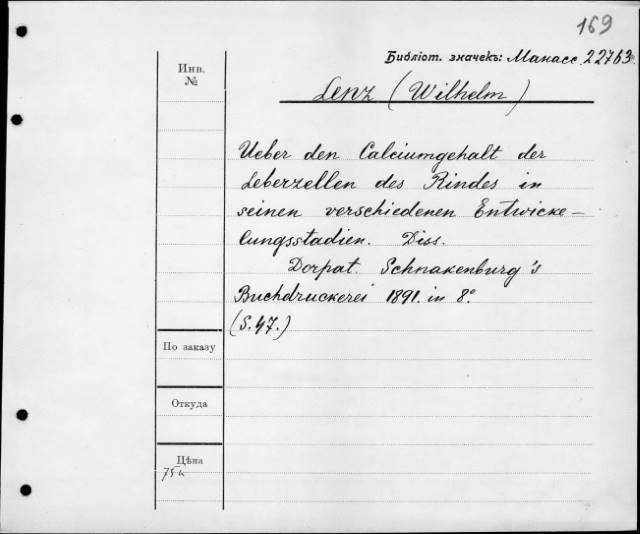 169
Библiот. значекъ: Манасс. 22763.
Инв.
№
Lenz (Wilhelm)
Ueber den Calciumgehalt der
Leberzellen des Rindes in
seinen verschiedenen Entwicke-
lungsstadien. Diss.
Dorpat. Schnakenburg's
Buchdruckerei 1891. in 8°.
(S. 47.)
По заказу
Откуда
Цѣна
75к